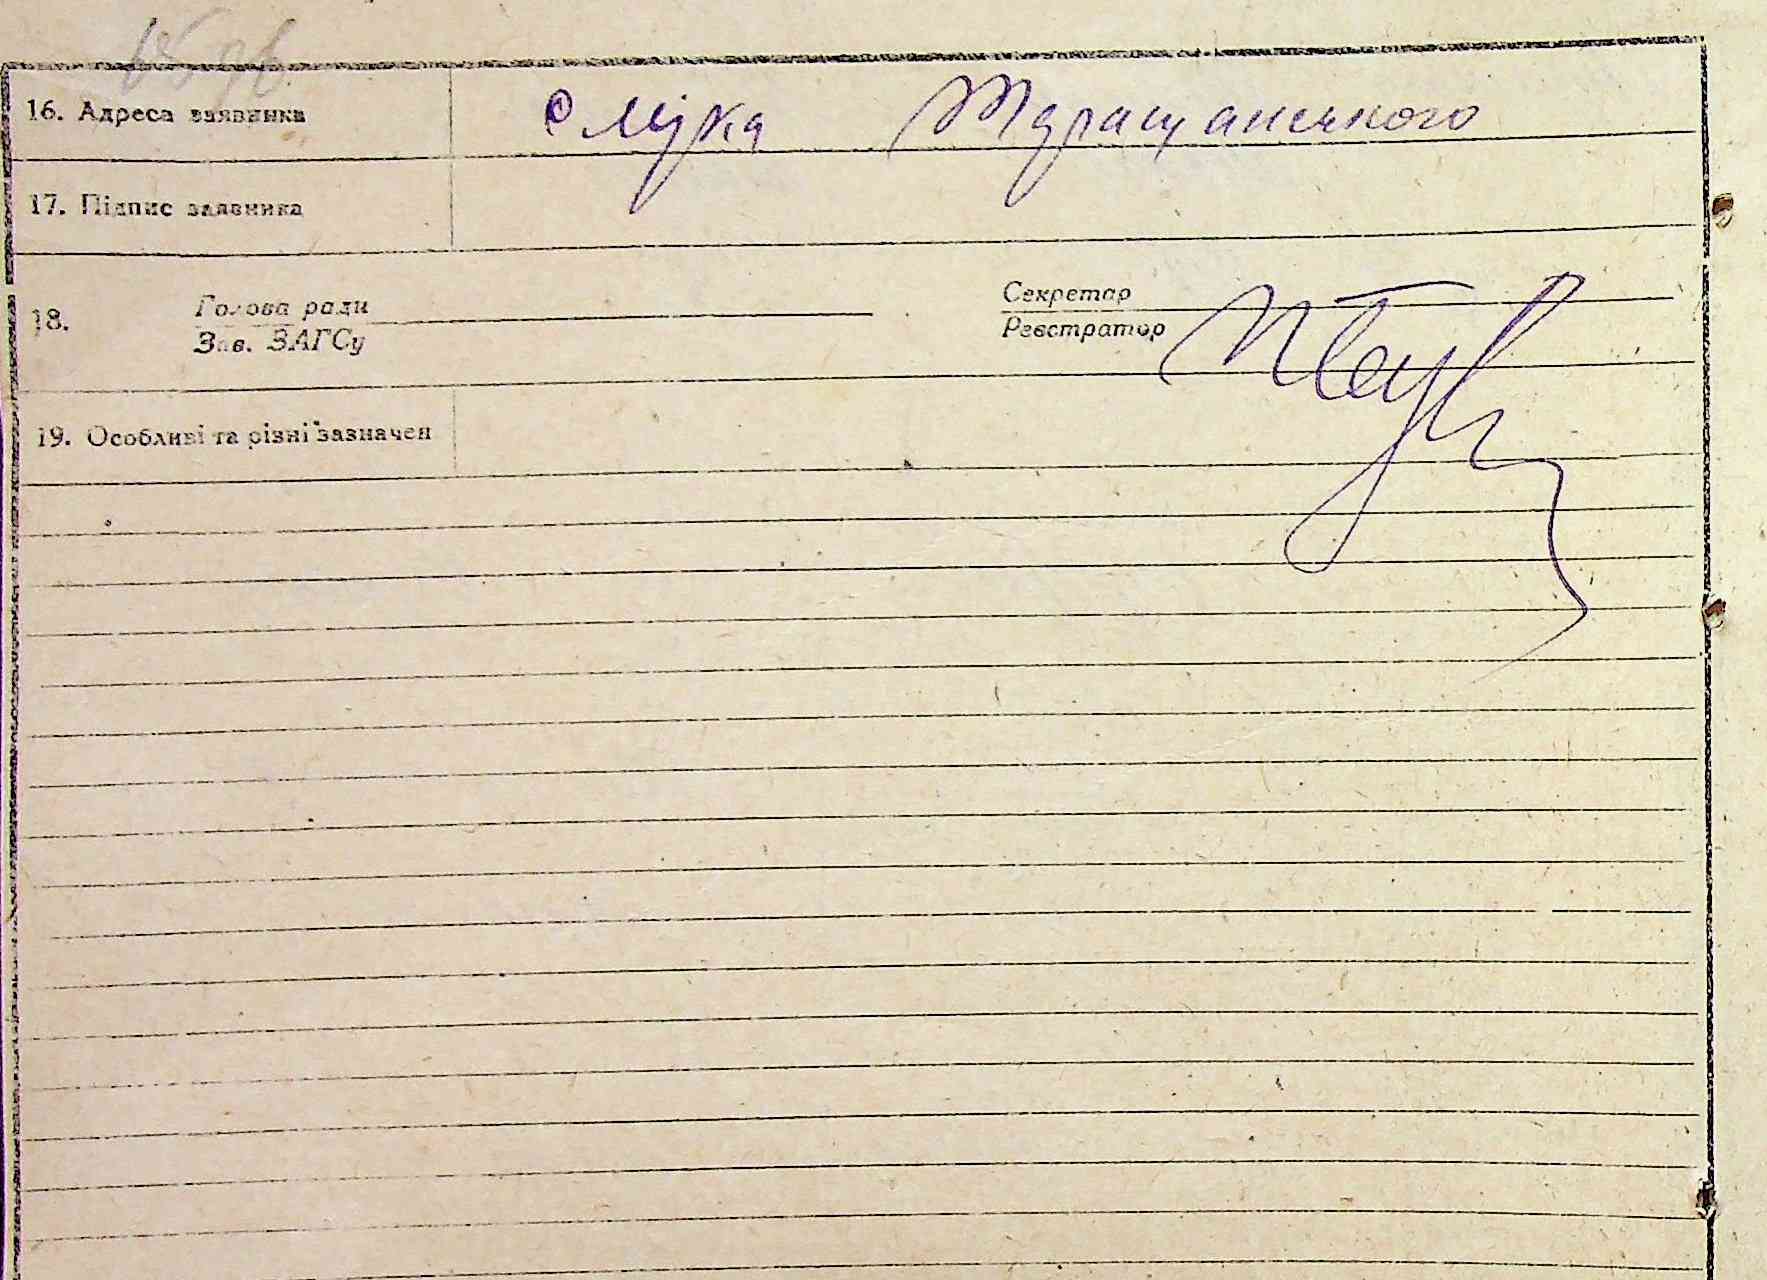 16. Адреса заявника с Лука Таращанського
17. Підпис заявника
18. Голова ради Секретар
Зав. ЗАГСу Реєстратор
19. Особливі та різні зазначен